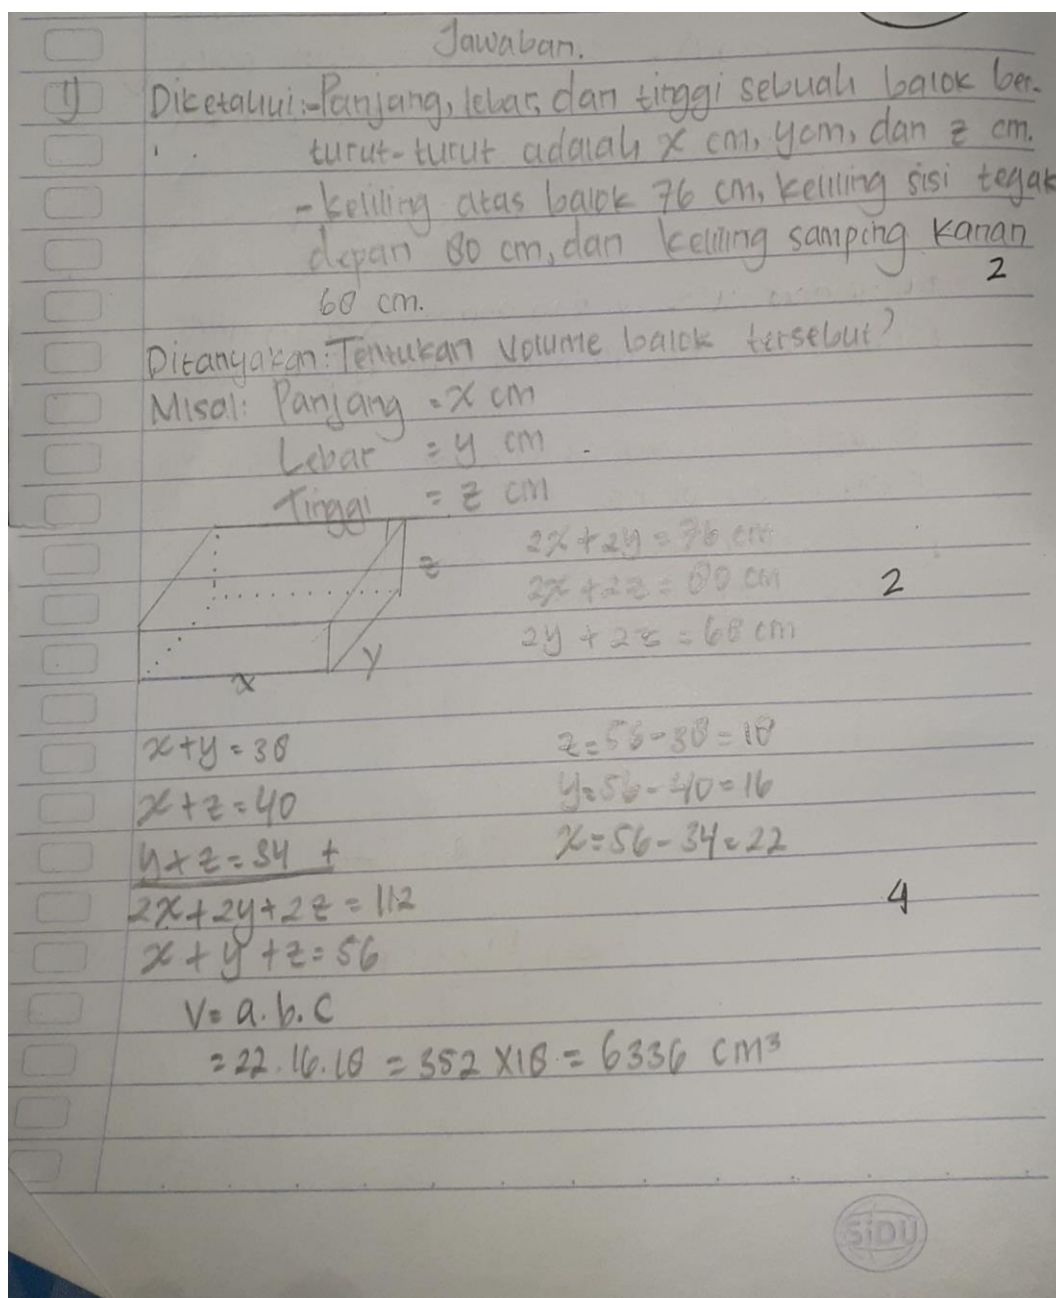 Jawaban.
1) Diketahui:-Panjang, lebar, dan tinggi sebuah balok ber-
turut-turut adalah x cm, y cm, dan z cm.
- keliling atas balok 76 cm, keliling sisi tegak
depan 80 cm, dan keliling samping kanan
2
68 cm.
Ditanyakan: Tentukan Volume balok tersebut?
Misal: Panjang = x cm
Lebar = y cm
Tinggi = z cm
2x + 2y = 76 cm
z
2x + 2z = 80 cm
2
2y + 2z = 68 cm
y
x
x + y = 38
z = 56 - 38 = 18
x + z = 40
y = 56 - 40 = 16
y + z = 34 +
x = 56 - 34 = 22
2x + 2y + 2z = 112
4
x + y + z = 56
V = a. b. c
= 22. 16. 18 = 352 X 18 = 6336 cm³
SiDU